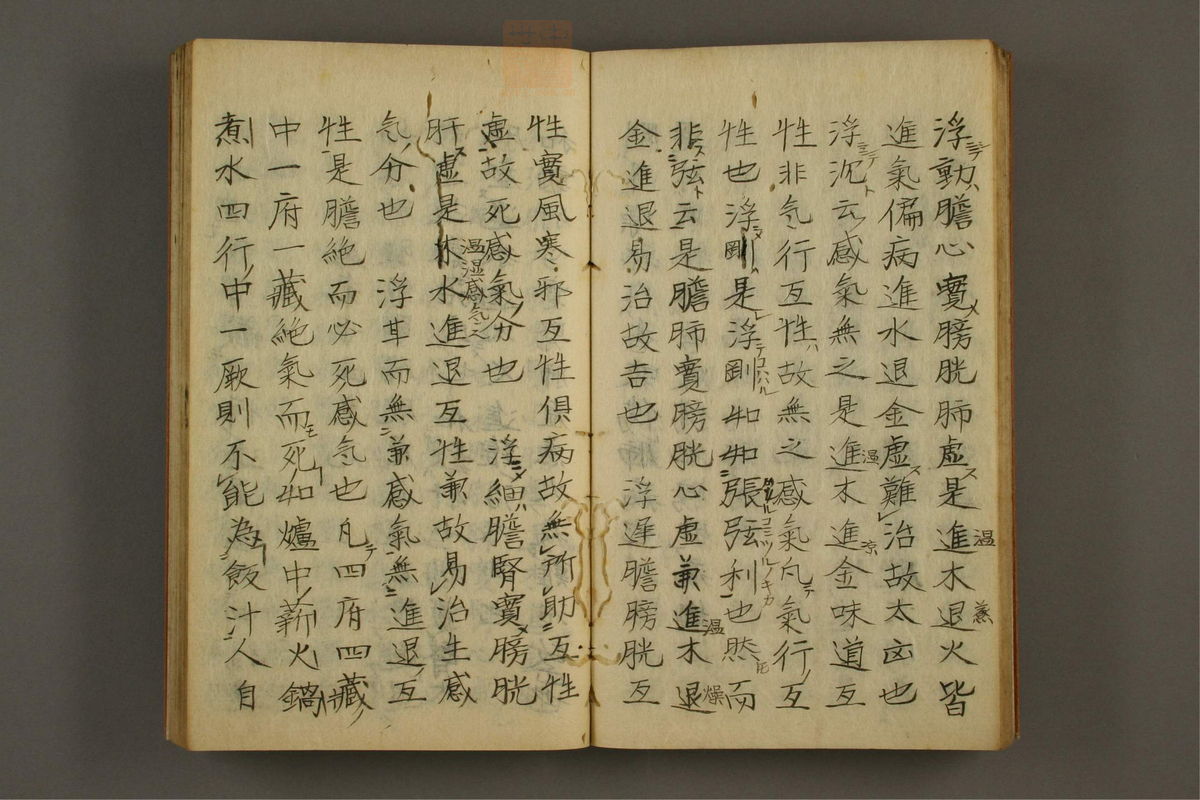 浮動膽心實膀胱肺虚是進木退火皆
進氣偏病進水退金虚難治故太凶也
浮沉云感氣無之是進木進金味道互
性非氣行互性故無之感氣凡氣行互
性也浮剛是浮剛如如張弦利也然而
非弦云是膽肺實膀胱心虚兼進木退
金進退易治故吉也 浮遅膽膀胱互
性實風寒邪互性俱病故無所助互性
虚故死感氣分也 浮細膽腎實膀胱
肝虚是木水進退互性兼故易治生感
気分也 浮芤而無兼感氣無進退互
性是膽絶而必死感気也凡四府四藏
中一府一藏絶氣而死如爐中薪火鍋
煮水四行中一厥則不能為飯汁人自